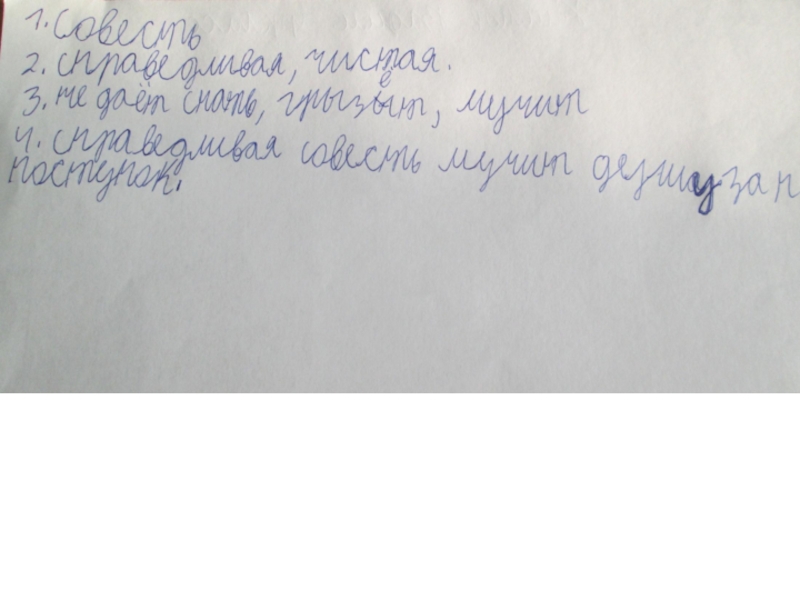 1. Совесть
2. справедливая, чистая.
3. не даёт спать, грызёт, мучит
4. справедливая совесть мучит за п
поступок.